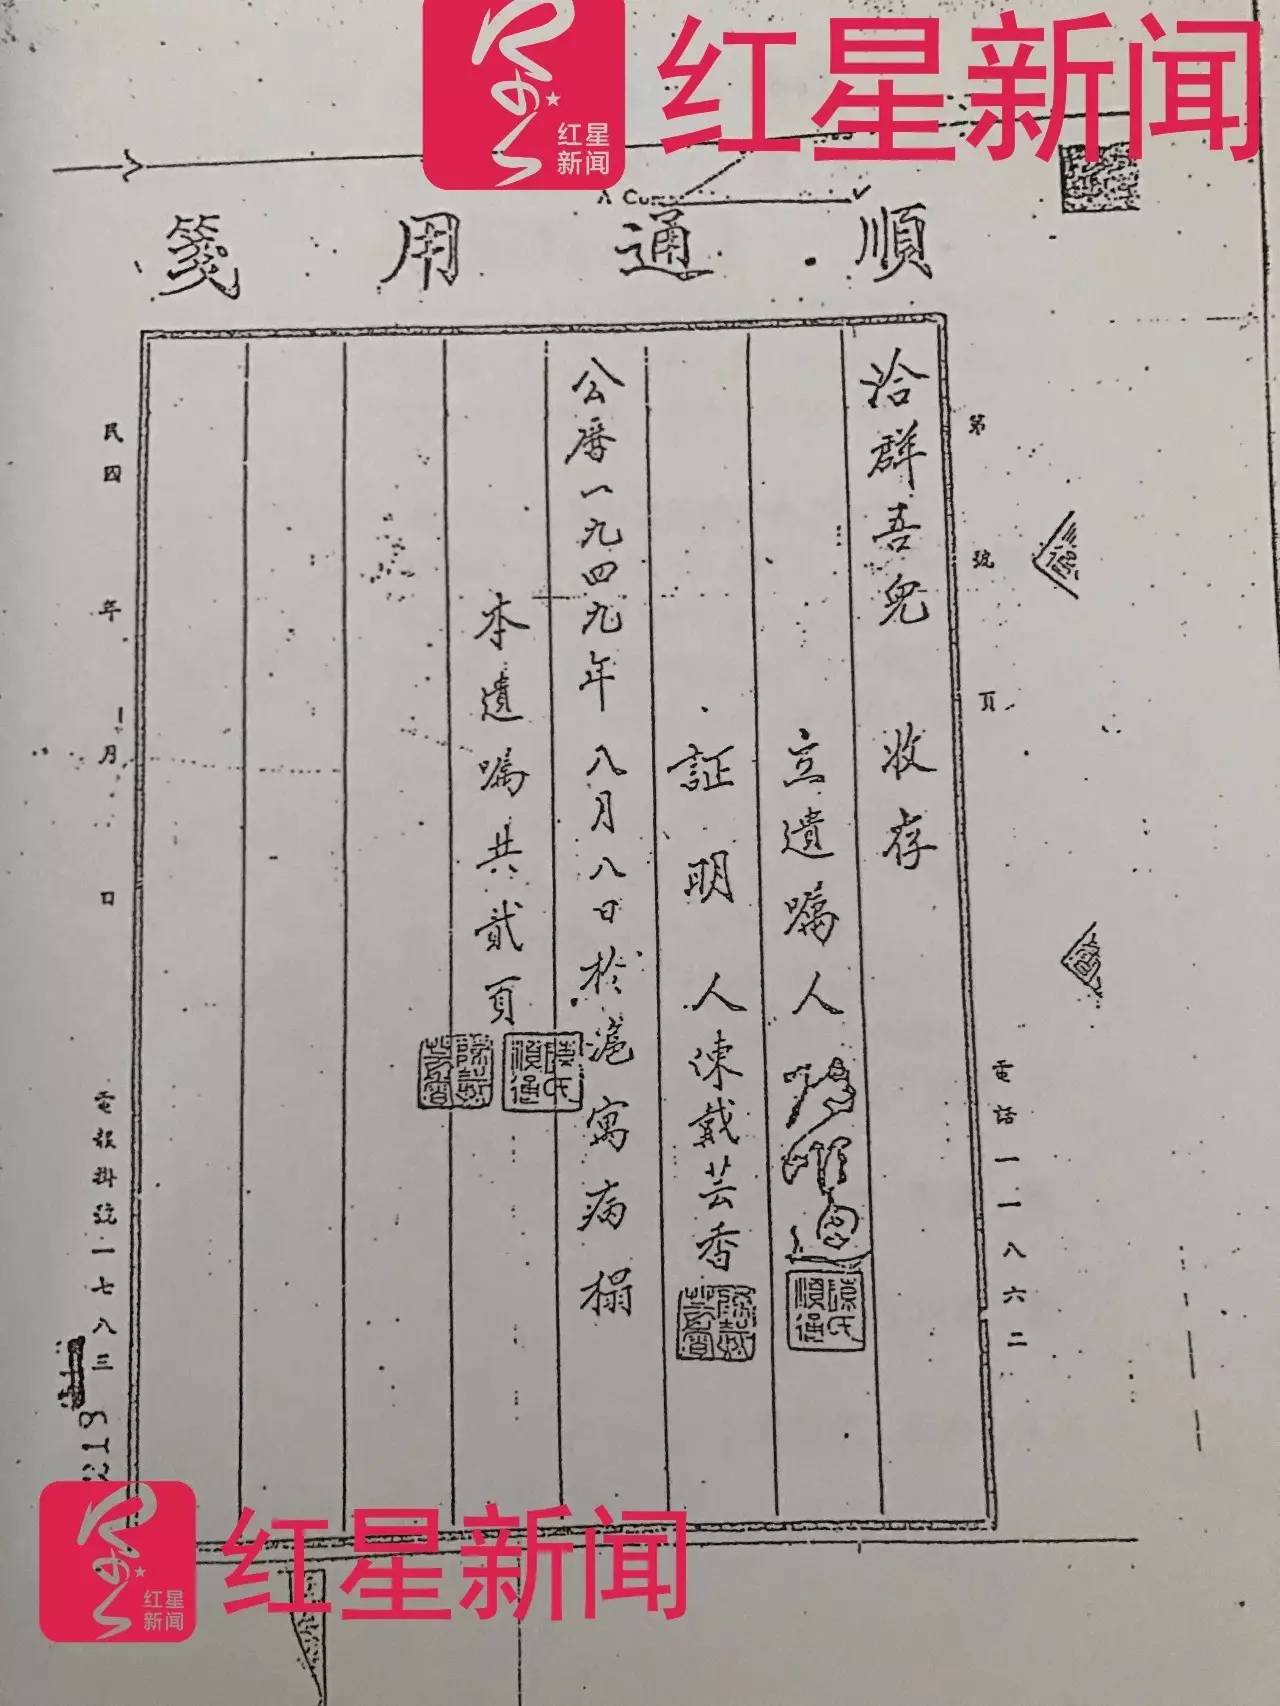 红星新闻
红星
新闻
順通用箋
第 號 頁
電話一一八六二
洽群吾兒 收存
立遺囑人
陳氏
順通
証明人陳戴芸香
公曆一九四九年八月八日於滬寓病榻
本遺囑共貳頁
陳氏
順通
民國 年 月 日
電報掛號一七八三
219
红星新闻
红星
新闻